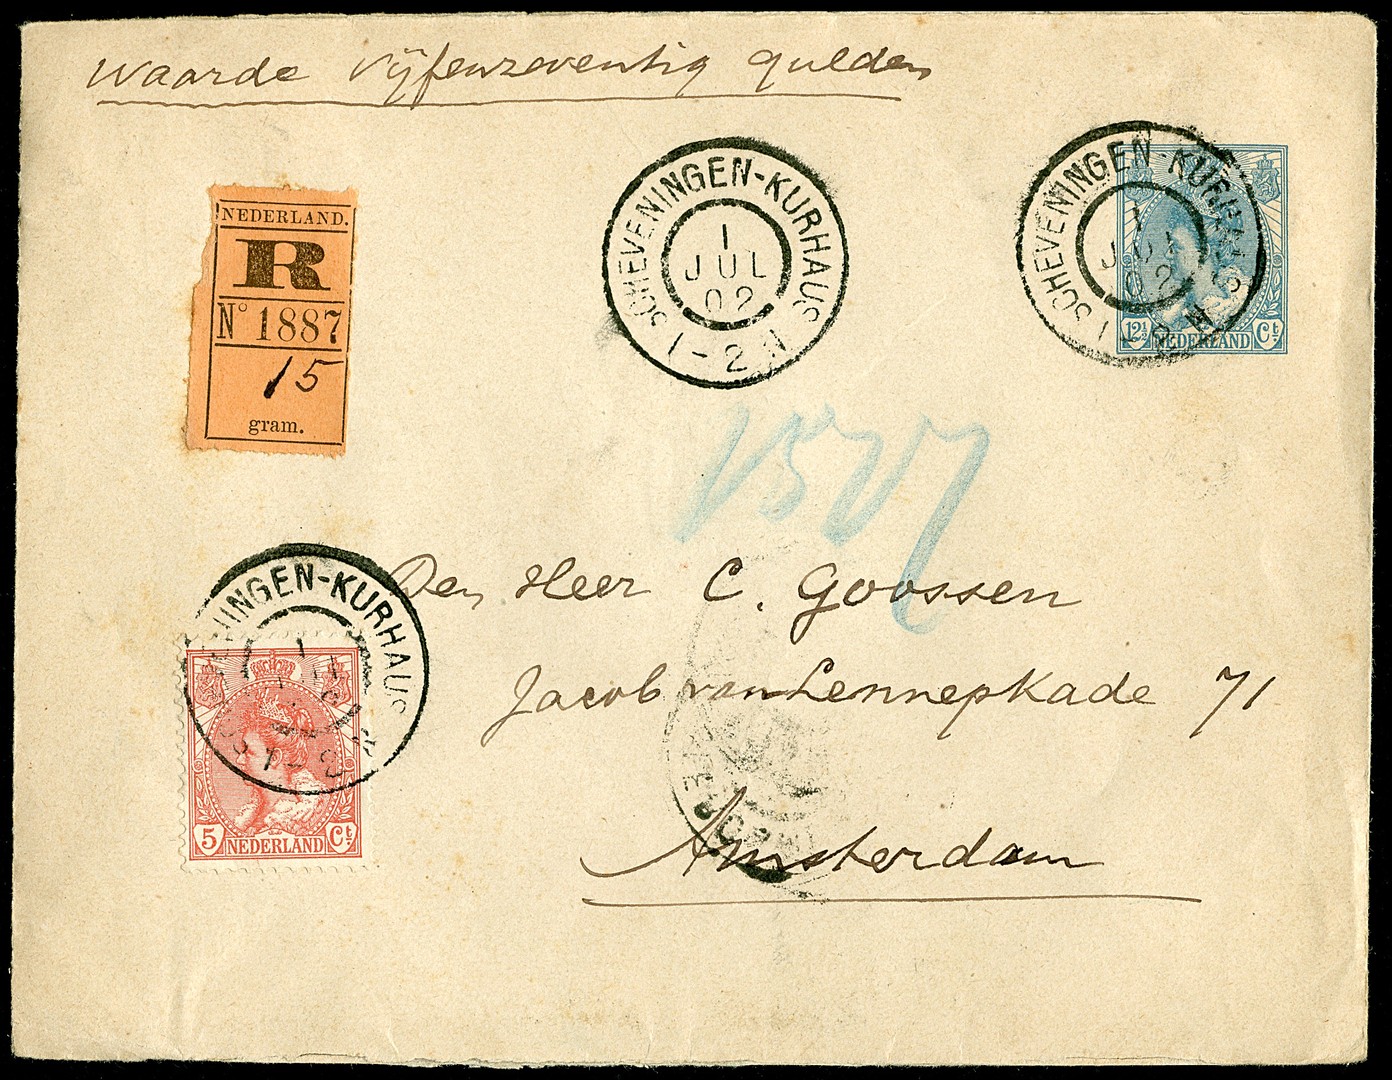 Waarde vijfenzeventig gulden
NEDERLAND.
R
N° 1887
15
gram.
SCHEVENINGEN-KURHAUS
1
JUL
02
1-2 N
SCHEVENINGEN-KURHAUS
1
JUL
02
1-2 N
12½ NEDERLAND Ct
Den Heer C. Goossen
Jacob van Lennepkade 71
Amsterdam
ENINGEN-KURHAUS
1
5 NEDERLAND Ct